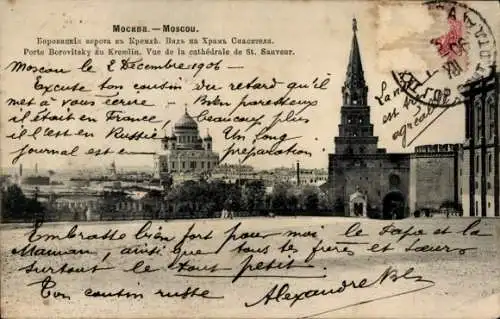 Москва. — Moscou.
Боровицкія ворота въ Кремлѣ. Видъ на Храмъ Спасителя.
Porte Borovitsky du Kremlin. Vue de la cathédrale de St. Sauveur.
Moscou le 2 Décembre 1906
Excuse ton cousin du retard qu'il
met à vous écrire Bien paresseux
il était en France Beaucoup plus
il l'est en Russie Un long
journal est en préparation
La
très
agréable
Embrasse bien fort pour moi le Pape et la
Maman, ainsi que tous les frères et sœurs
surtout le tout petit
Ton cousin russe
Alexandre